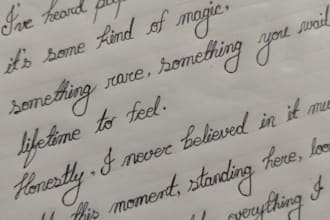 I've heard
it's some kind of magic,
something rare, something you wait
lifetime to feel.
Honestly, I never believed in it
this moment, standing here,
everything I